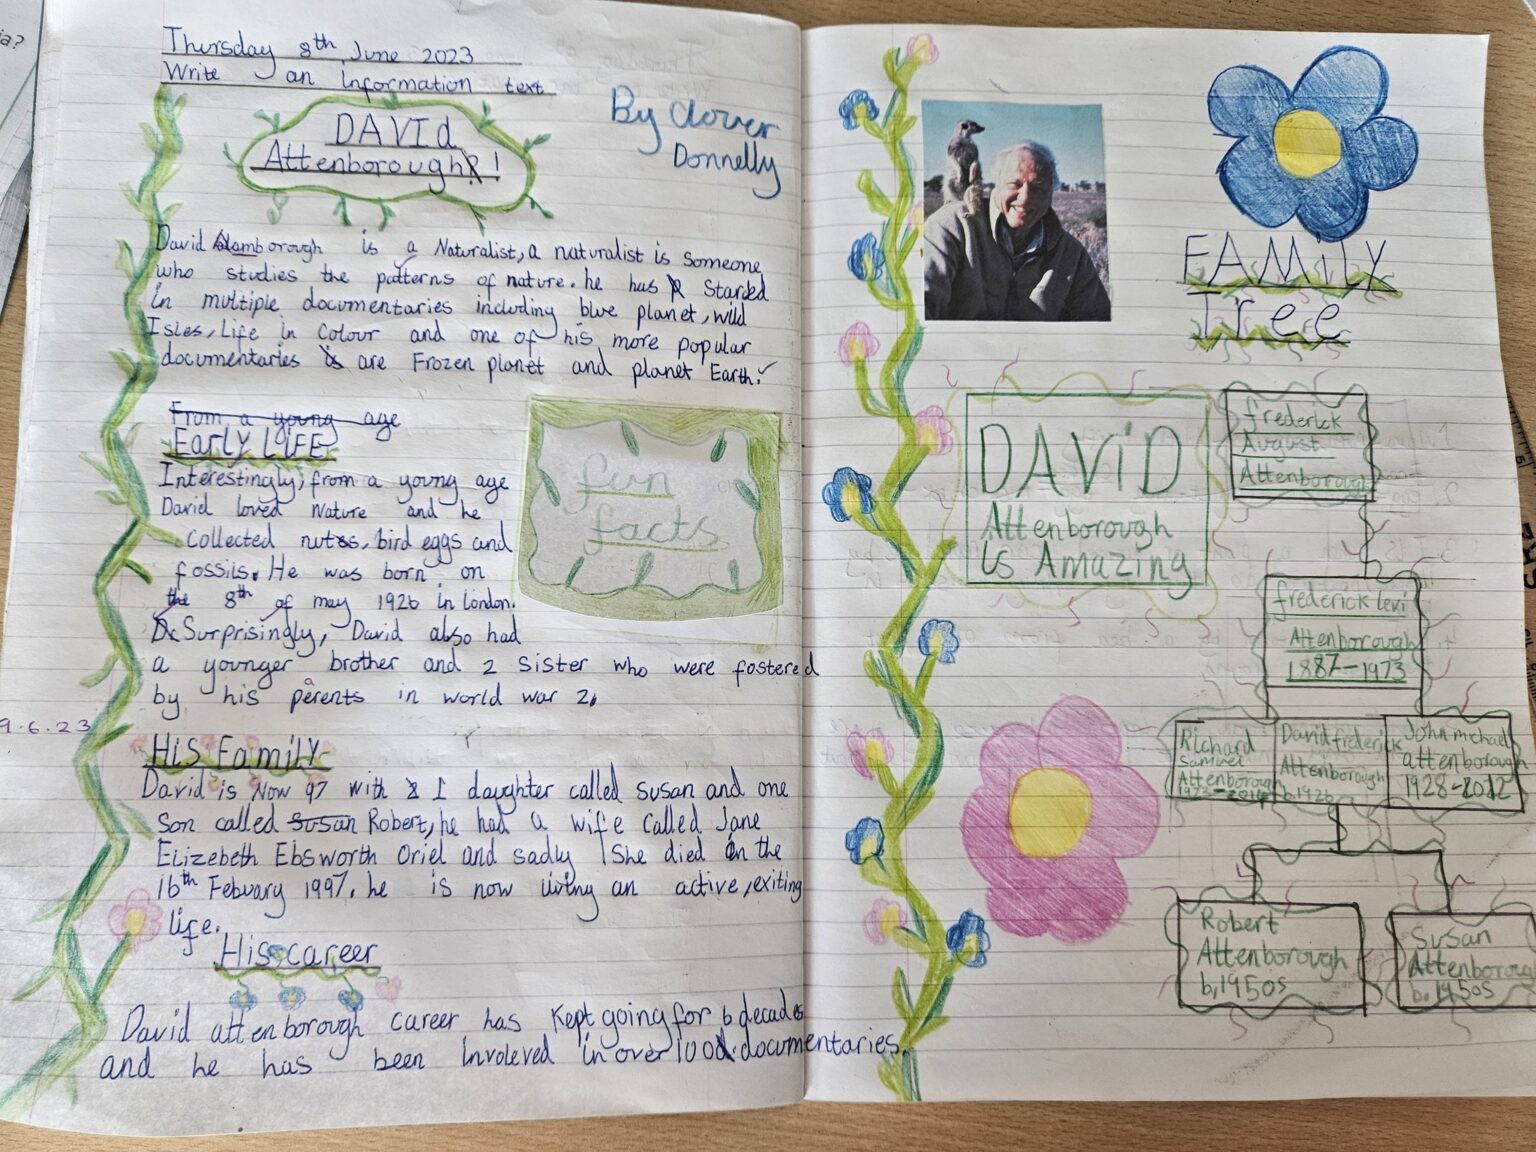 ia?
Thursday 8th June 2023
Write an Information text
By Clover
Donnelly
DAVId
Attenborough!
David Alamborough is a Naturalist, a naturalist is someone
who studies the patterns of nature. he has Starded
in multiple documentaries including blue planet, wild
Isles, Life in Colour and one of his more popular
documentaries are Frozen planet and planet Earth.
From a young age
Early LIFE
Interestingly, from a young age
David loved Nature and he
Collected nutes, bird eggs and
fossils. He was born on
the 8th of may 1926 in London.
Surprisingly, David also had
a younger brother and 2 sister who were fostered
by his perents in world war 2.
fun
facts
9.6.23
His Family
David is Now 97 with 1 daughter called Susan and one
Son called Susan Robert, he had a wife called Jane
Elizebeth Ebsworth Oriel and sadly She died on the
16th Febuary 1997. he is now living an active, exiting
life.
His career
David attenborough career has kept going for 6 decades
and he has been involeved in over 100 documentaries.
FAMILY
Tree
DAVID
Attenborough
is Amazing
frederick
August
Attenborough
frederick levi
Attenborough
1887-1973
Richard
Samuel
Attenborough
David frederick
Attenborough
b.1926
John michael
attenborough
1928-2012
Robert
Attenborough
b.1950s
Susan
Attenborough
b.1950s